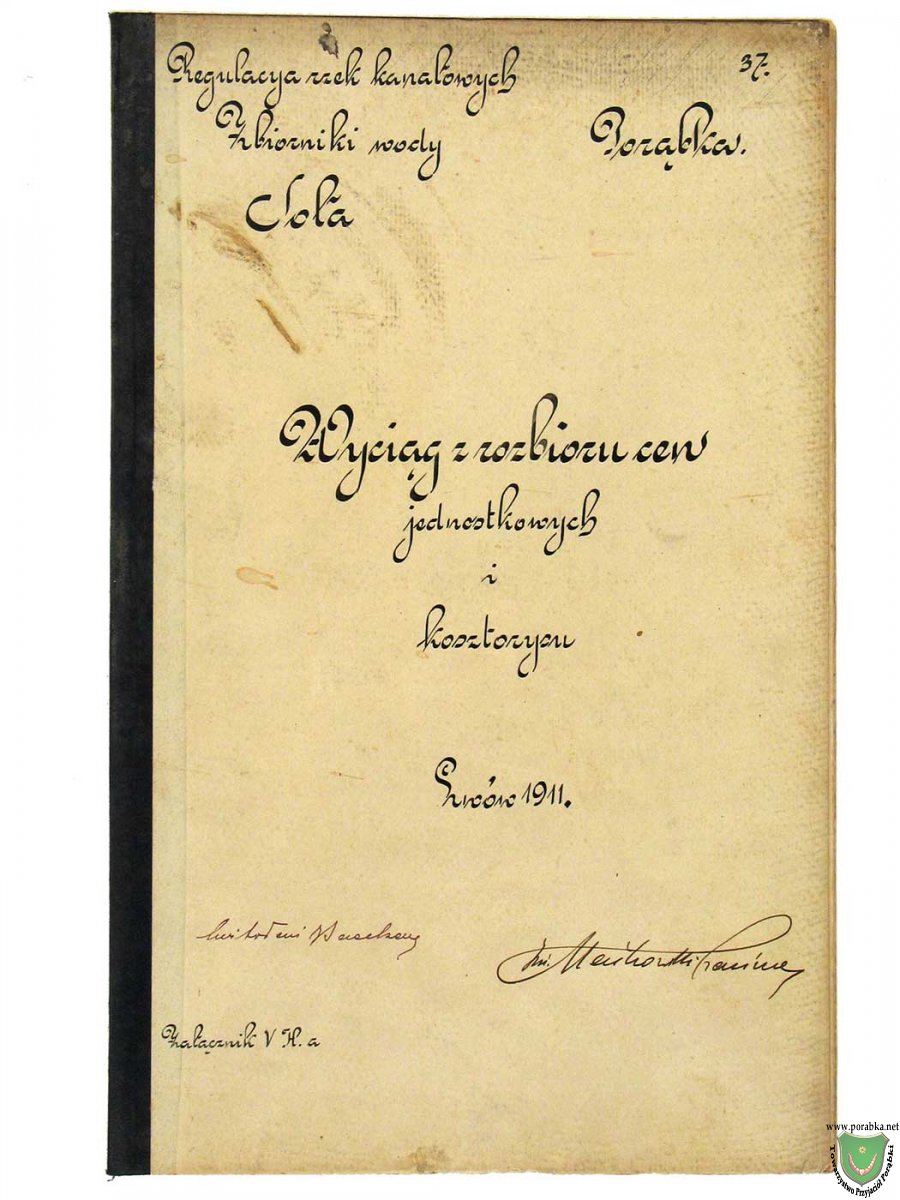 Regulacya rzek kanałowych
37.
Zbiorniki wody
Porąbka.
Soła
Wyciąg z rozbioru cen
jednostkowych
i
kosztorysu
Lwów 1911.
Załącznik V H. a
www.porabka.net
Towarzystwo Przyjaciół Porąbki